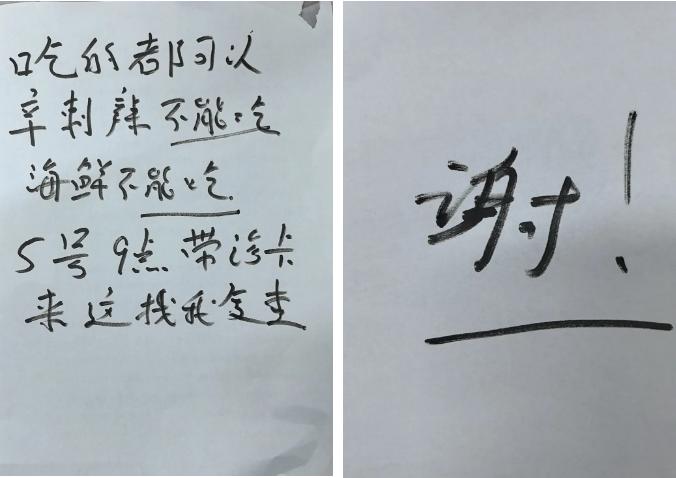 吃的都可以
辛刺辣不能吃
海鲜不能吃.
5号9点带诊卡
来这找我复查
谢!